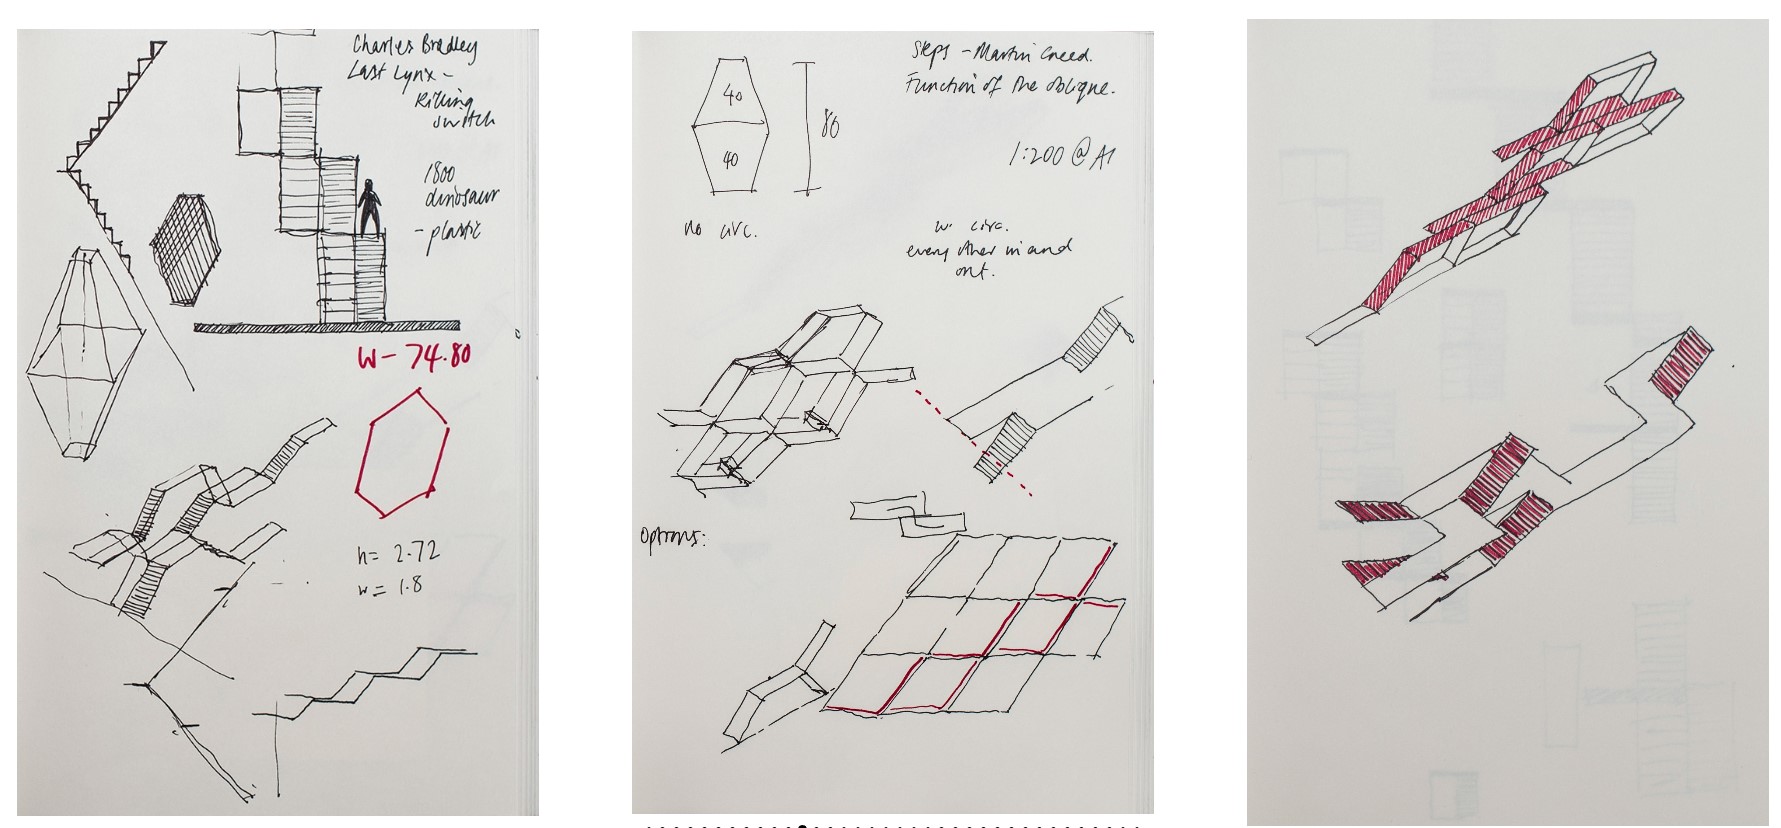 Charles Bradley
Last Lynx -
Killing
switch
1800
dinosaur
- plastic
W - 74.80
h = 2.72
w = 1.8
Steps - Martin Creed.
Function of the oblique.
40
40
80
1:200 @ A1
no circ.
w. circ.
every other in and
out.
Options: